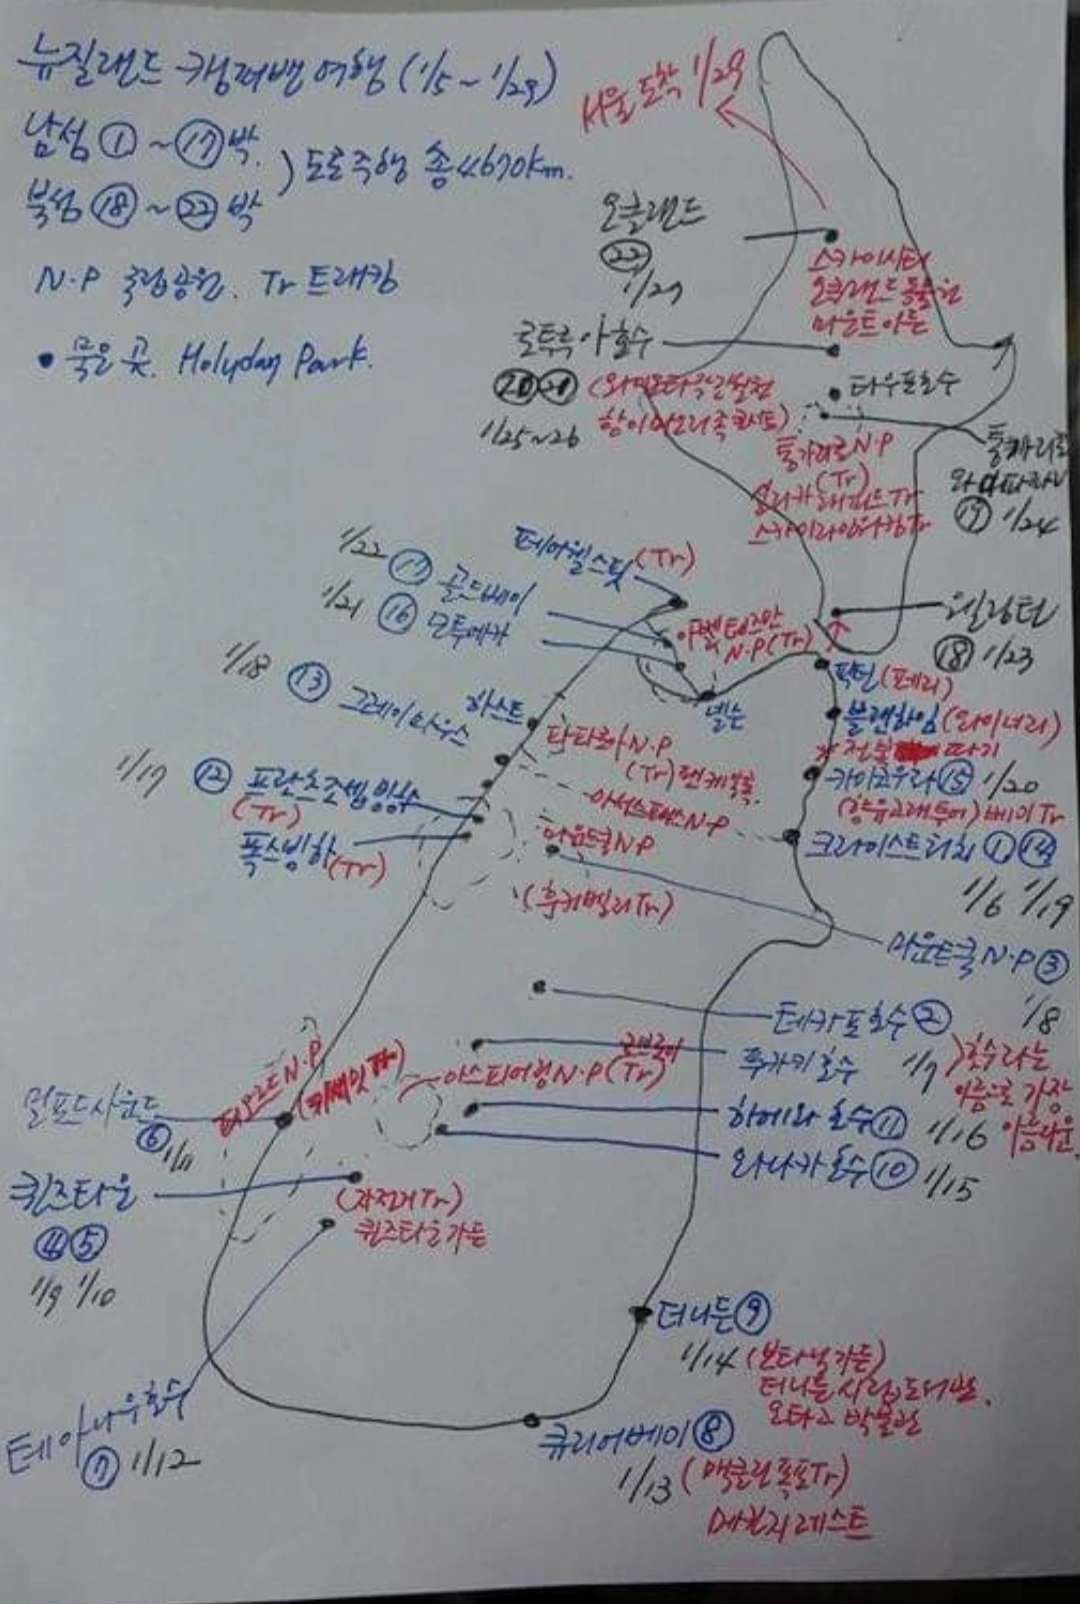 뉴질랜드 캠퍼밴 여행 (1/5 ~ 1/29)
남섬 ① ~ ⑰박.
북섬 ⑱ ~ ㉒박
) 도로주행 총 4670km.
N·P 국립공원. Tr 트래킹
• 묵은 곳. Holyday Park.
서울 도착 1/29
오클랜드
㉒
1/27
스카이시티
오클랜드 동물원
마운트이든
로투루아호수
⑳ ㉑
1/25~26
항이 마오리족 콘서트)
타우포호수
통가리로 N·P
(Tr)
스카이라인
통가리로
⑲ 1/24
웰링턴
⑱ 1/23
페어웰스핏 (Tr)
1/22 ⑰ 골든베이
1/21 ⑯ 모투에카
아벨 테즈만
N·P (Tr)
픽턴 (페리)
넬슨
블랜하임 (와이너리)
* 전복 따기
카이코우라 ⑮ 1/20
(향유고래투어) 베이 Tr
1/18 ⑬ 그레이마우스
하스트
N·P
(Tr) 팬케익록.
아서스패스 N·P
크라이스트처치 ① ⑭
1/6 1/19
1/17 ⑫ 프란츠조셉빙하
(Tr)
폭스빙하 (Tr)
마운트쿡 N·P
(후커밸리 Tr)
마운트쿡 N·P ③
1/8
테카포호수 ②
1/7
푸카키호수
)호수라는
이름으로 가장
아름다운
피오르드 N·P
(키써밋 Tr)
아스피어링 N·P (Tr)
로브로이
밀포드사운드
⑥ 1/11
하웨아 호수 ⑪ 1/16
와나카 호수 ⑩ 1/15
퀸즈타운
④ ⑤
1/9 1/10
(자전거 Tr)
퀸즈타운가든
더니든 ⑨
1/14 (보타닉가든)
더니든 시립도서관.
오타고 박물관
테아나우호수
⑦ 1/12
큐리어베이 ⑧
1/13 (맥클린폭포 Tr)